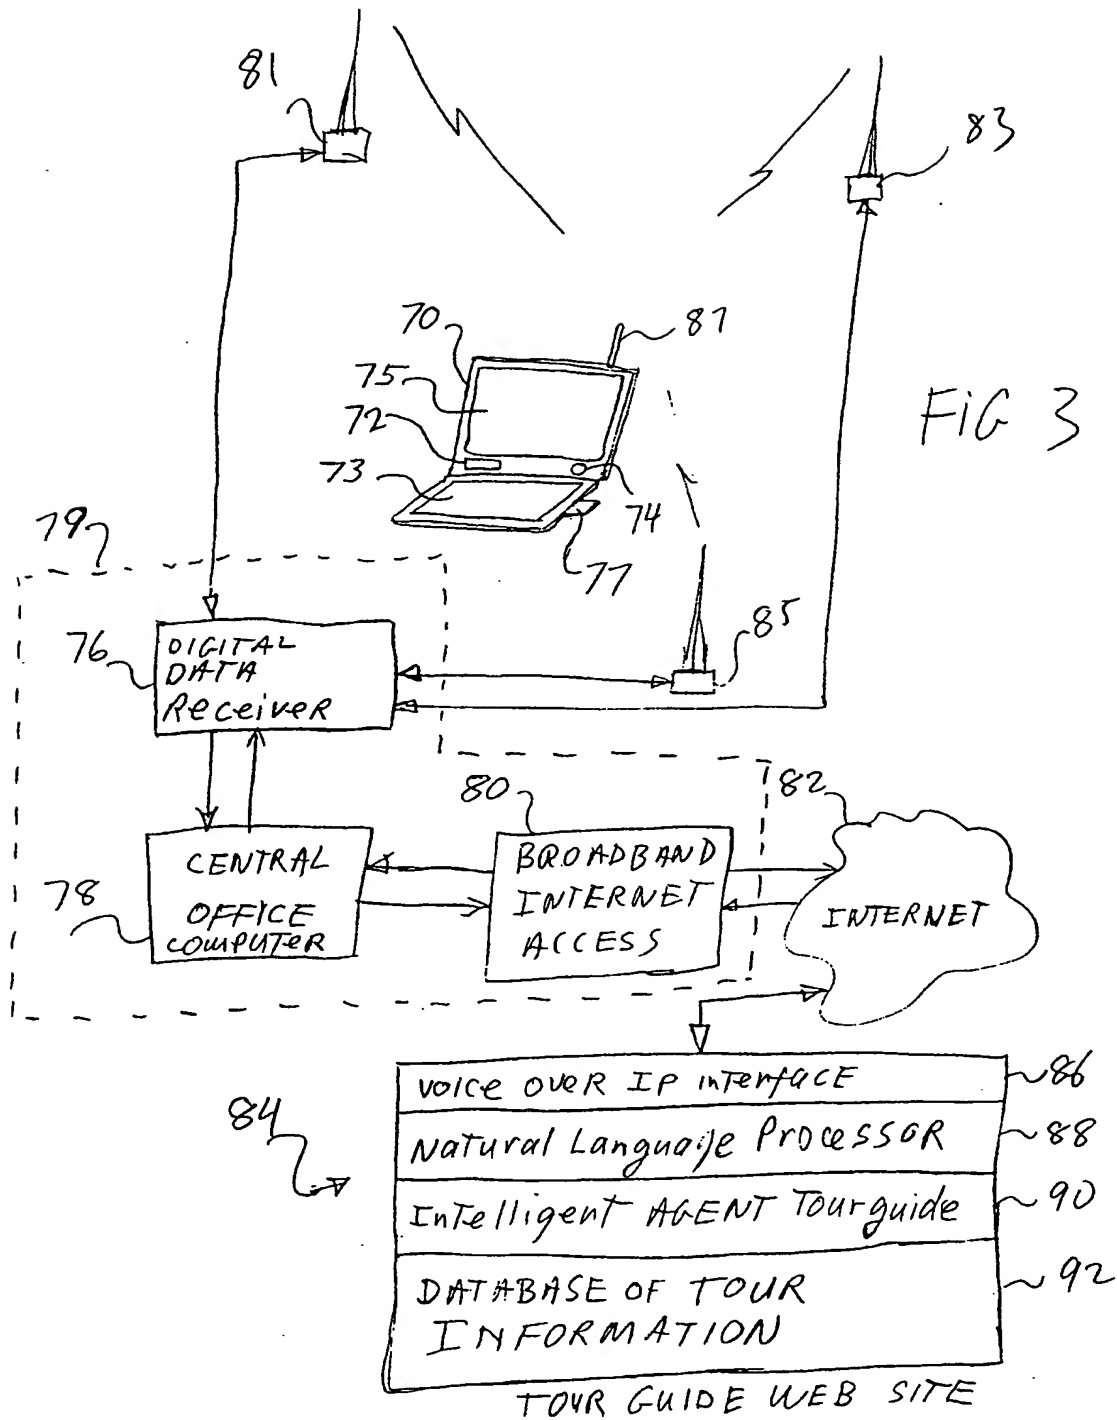 81
83
70
87
75
72
FiG 3
73
74
79
77
76
DIGITAL
DATA
Receiver
85
80
82
CENTRAL
OFFICE
COMPUTER
78
BROADBAND
INTERNET
ACCESS
INTERNET
VOICE OVER IP interFACE
86
84
Natural Language ProcessOR
88
Intelligent AGENT Tourguide
90
DATABASE OF TOUR
INFORMATION
92
TOUR GUIDE WEB SITE